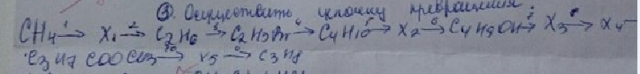 ③. Осуществить цепочку превращений:
CH₄ →¹ X₁ →² C₂H₆ →³ C₂H₅Br →⁴ C₄H₁₀ →⁵ X₂ →⁶ C₄H₉OH →⁷ X₃ →⁸ X₄ —
C₃H₇COOCH₃ → X₅ → C₃H₈